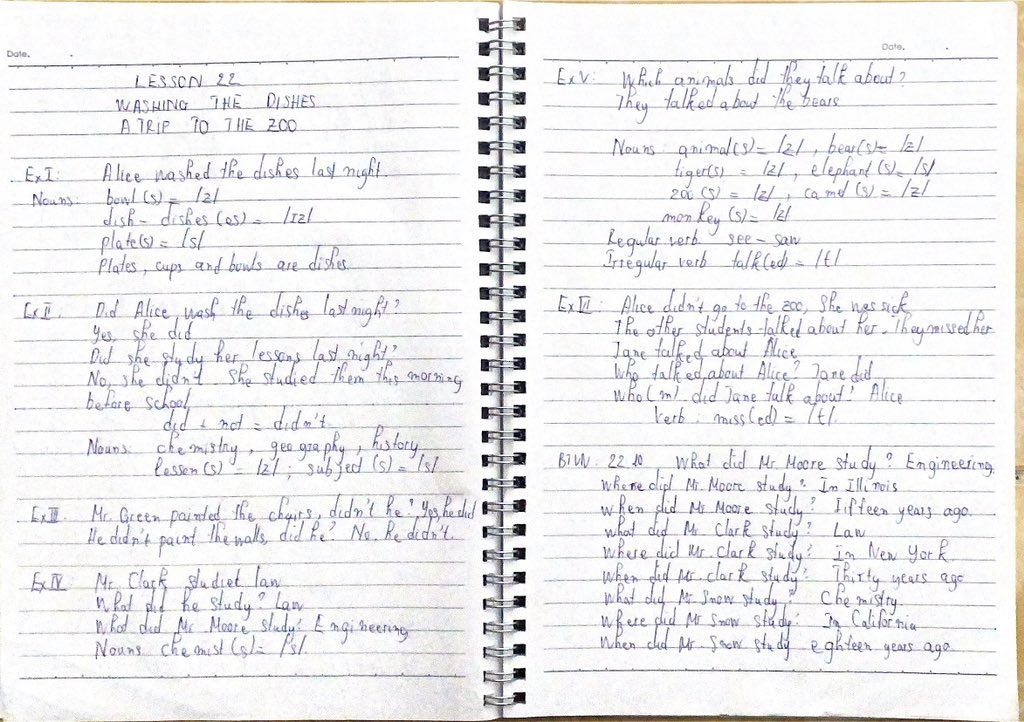 Date.
LESSON 22
WASHING THE DISHES
A TRIP TO THE ZOO
Ex I: Alice washed the dishes last night.
Nouns: bowl(s) = /z/
dish - dishes (es) = /ɪz/
plate(s) = /s/
Plates, cups and bowls are dishes
Ex II: Did Alice wash the dishes last night?
Yes, she did
Did she study her lessons last night?
No, she didn't. She studied them this morning
before school,
did + not = didn't.
Nouns: chemistry, geography, history
lesson(s) = /z/; subject(s) = /s/
Ex III: Mr. Green painted the chairs, didn't he? Yes, he did
He didn't paint the walls, did he? No. he didn't.
Ex IV: Mr. Clark studiet law
What did he study? Law
What did Mr Moore study? Engineering
Nouns chemist(s) = /s/.
Date.
Ex V: Which animals did they talk about?
They talked about the bears
Nouns: animal(s) = /z/, bear(s) = /z/
tiger(s) = /z/, elephant(s) = /s/
zoo(s) = /z/, camel(s) = /z/
monkey(s) = /z/
Regular verb see - saw
Irregular verb talk(ed) = /t/
Ex VI: Alice didn't go to the zoo, She was sick,
The other students talked about her. They missed her
Jane talked about Alice
Who talked about Alice? Jane did
Who(m) did Jane talk about? Alice
Verb: miss(ed) = /t/.
BTVN: 22.10, What did Mr. Moore study? Engineering,
Where did Mr. Moore study? In Illinois
When did Mr Moore study? Fifteen years ago.
What did Mr. Clark study? Law
Where did Mr. Clark study? In New York.
When did Mr. clark study? Thirty years ago
What did Mr. Snow study? Chemistry.
Where did Mr Snow study? In California
When did Mr. Snow study eighteen years ago.